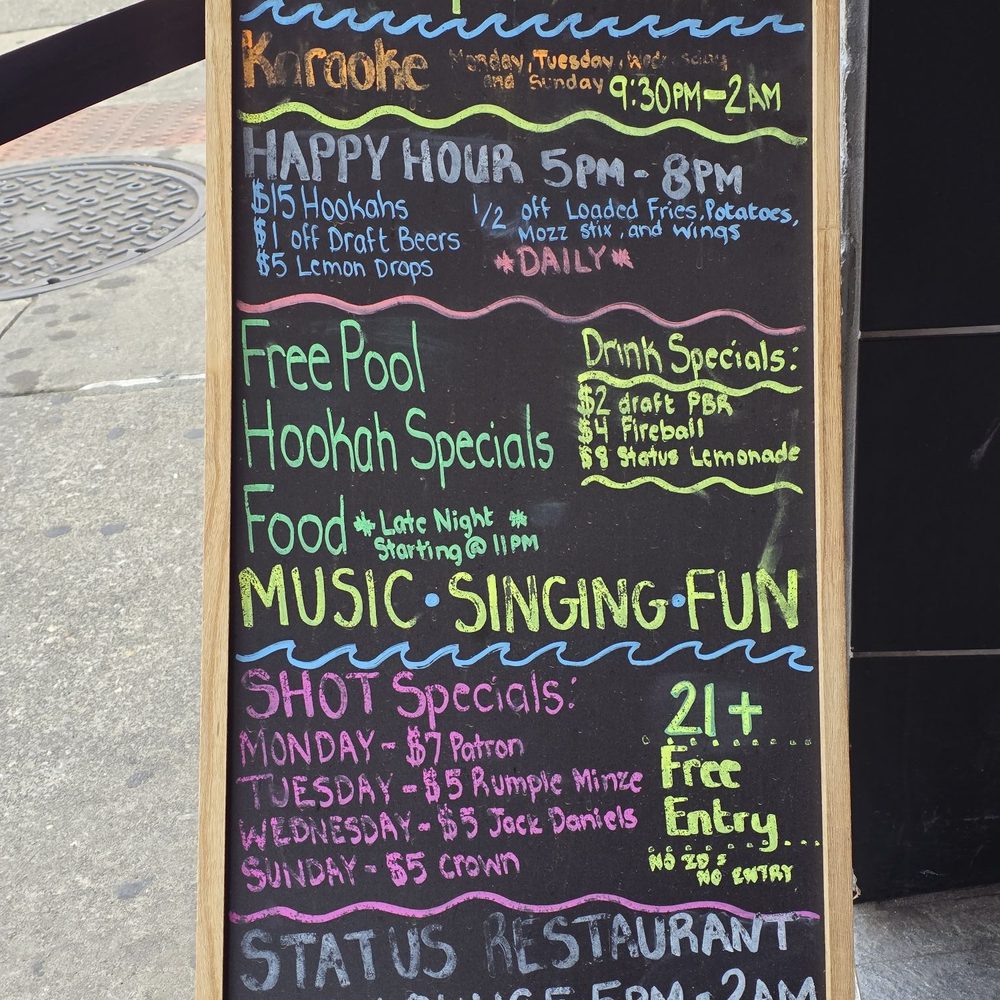 Karaoke Monday, Tuesday, Wednesday
and Sunday 9:30PM-2AM
HAPPY HOUR 5PM - 8PM
$15 Hookahs
$1 off Draft Beers
$5 Lemon Drops
1/2 off Loaded Fries, Potatoes,
Mozz Stix, and Wings
*DAILY*
Free Pool
Hookah Specials
Food *Late Night *
Starting @ 11PM
Drink Specials:
$2 draft PBR
$4 Fireball
$8 Status Lemonade
MUSIC • SINGING • FUN
SHOT Specials:
MONDAY - $7 Patron
TUESDAY - $5 Rumple Minze
WEDNESDAY - $5 Jack Daniels
SUNDAY - $5 Crown
21+
Free
Entry
NO ID =
NO ENTRY
STATUS RESTAURANT
LOUNGE 5PM - 2AM